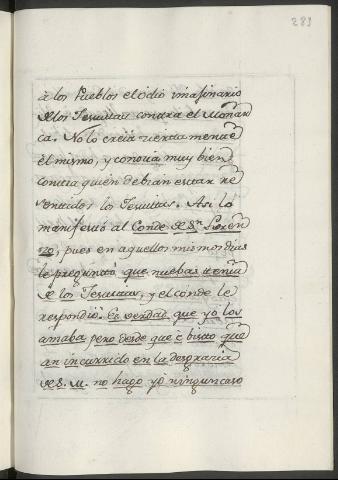 289
à los Pueblos el odio imaginario
de los Jesuitas contra el Monar
ca. No lo creía ciertamente
èl mismo, y conocia muy bien
contra quièn debian estar re
sentidos los Jesuitas. Asi lo
manifestò al Conde de Sn. Loren
zo, pues en aquellos mismos dias
le preguntò que nuebas tenia
de los Jesuitas, y el conde le
respondiò: Es verdad que yò los
amaba, pero desde que è bisto que
an incurrido en la desgracia
de S. M. no hago yò ningun caso